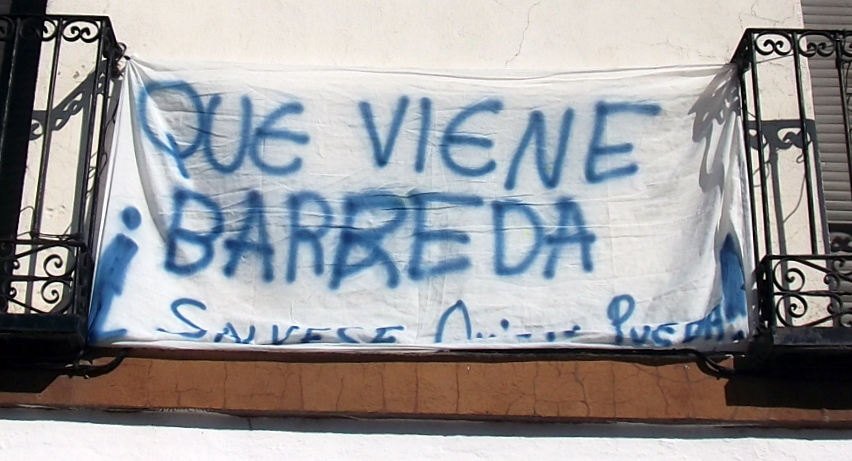 QUE VIENE
BARREDA
¡SALVESE QUIEN PUEDA!